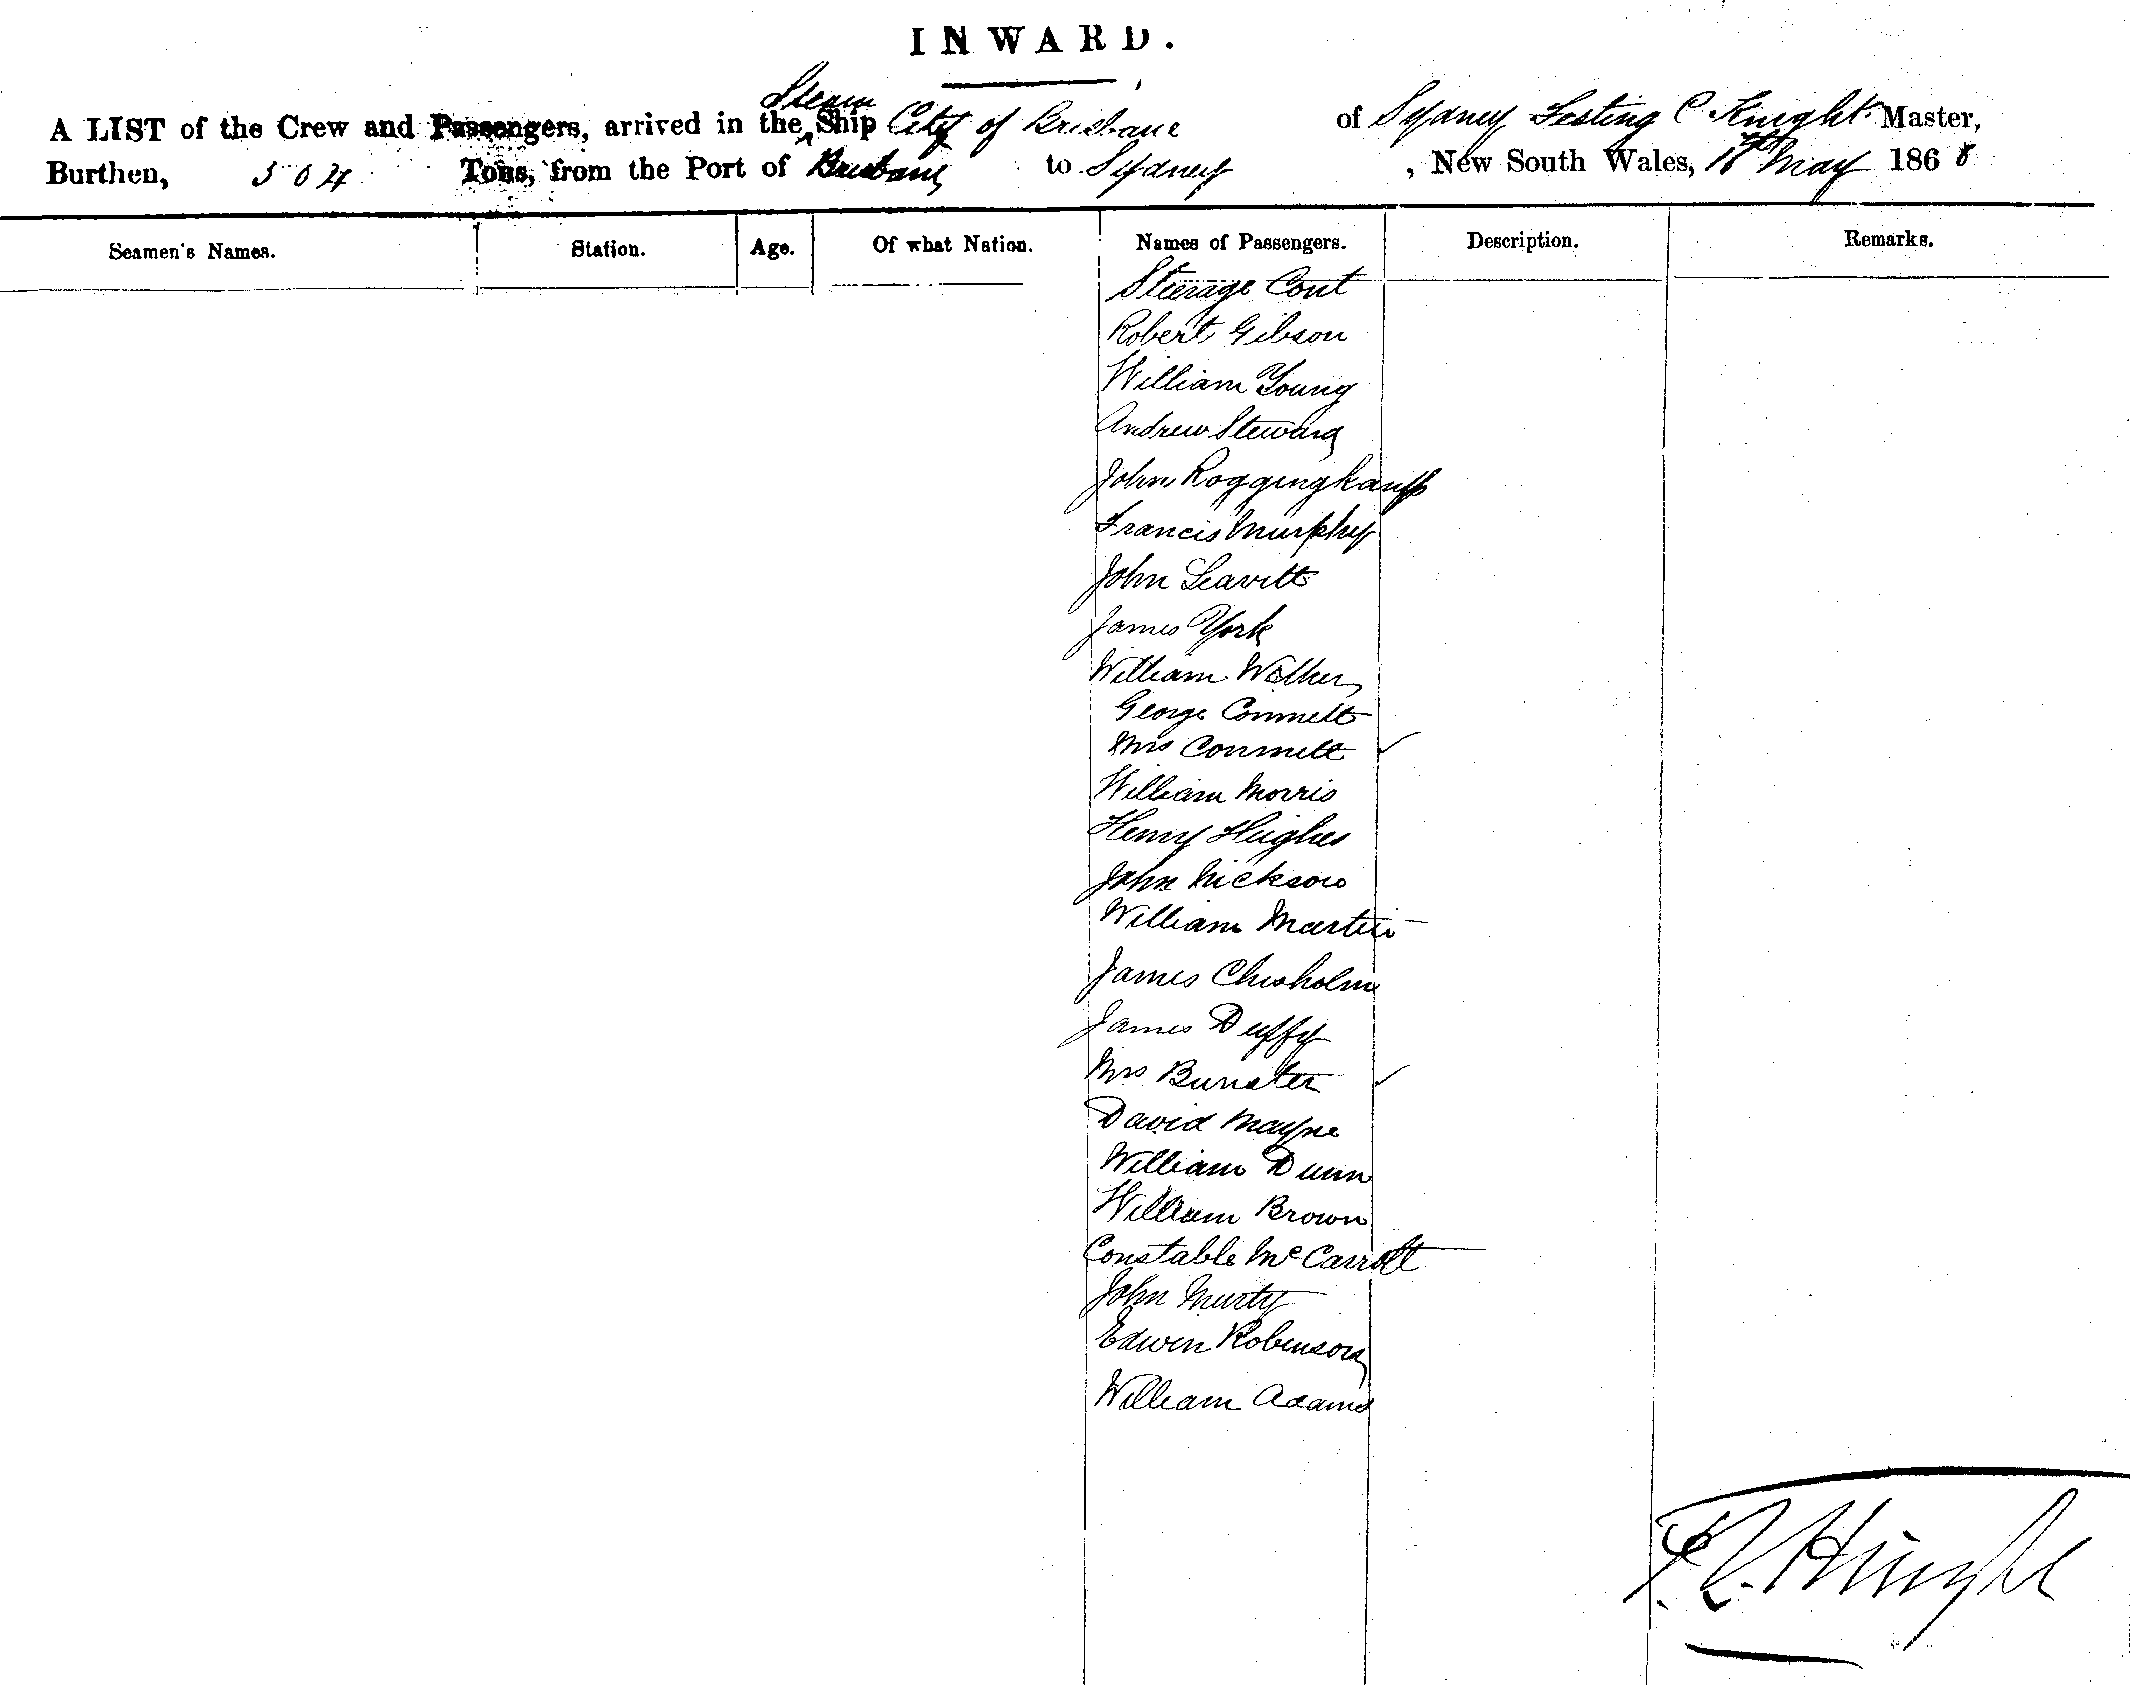 INWARD.
A LIST of the Crew and Passengers, arrived in the Steam Ship City of Brisbane of Sydney Festing C Knight Master,
Burthen, 504 Tons, from the Port of Brisbane to Sydney, New South Wales, 18th May 1868
Seamen's Names. Station. Age. Of what Nation. Names of Passengers. Description. Remarks.
Steerage Cont
Robert Gibson
William Young
Andrew Steward
John Roggingkamp
Francis Murphy
John Leavitt
James York
William Walker
George Conmett
Mrs Conmett
William Morris
Henry Hughes
John Nickson
William Martin
James Chisholm
James Duffy
Mrs Bunster
David Mayne
William Dunn
William Brown
Constable McCarroll
John Murty
Edwin Robinson
William Adams
F. C. Knight